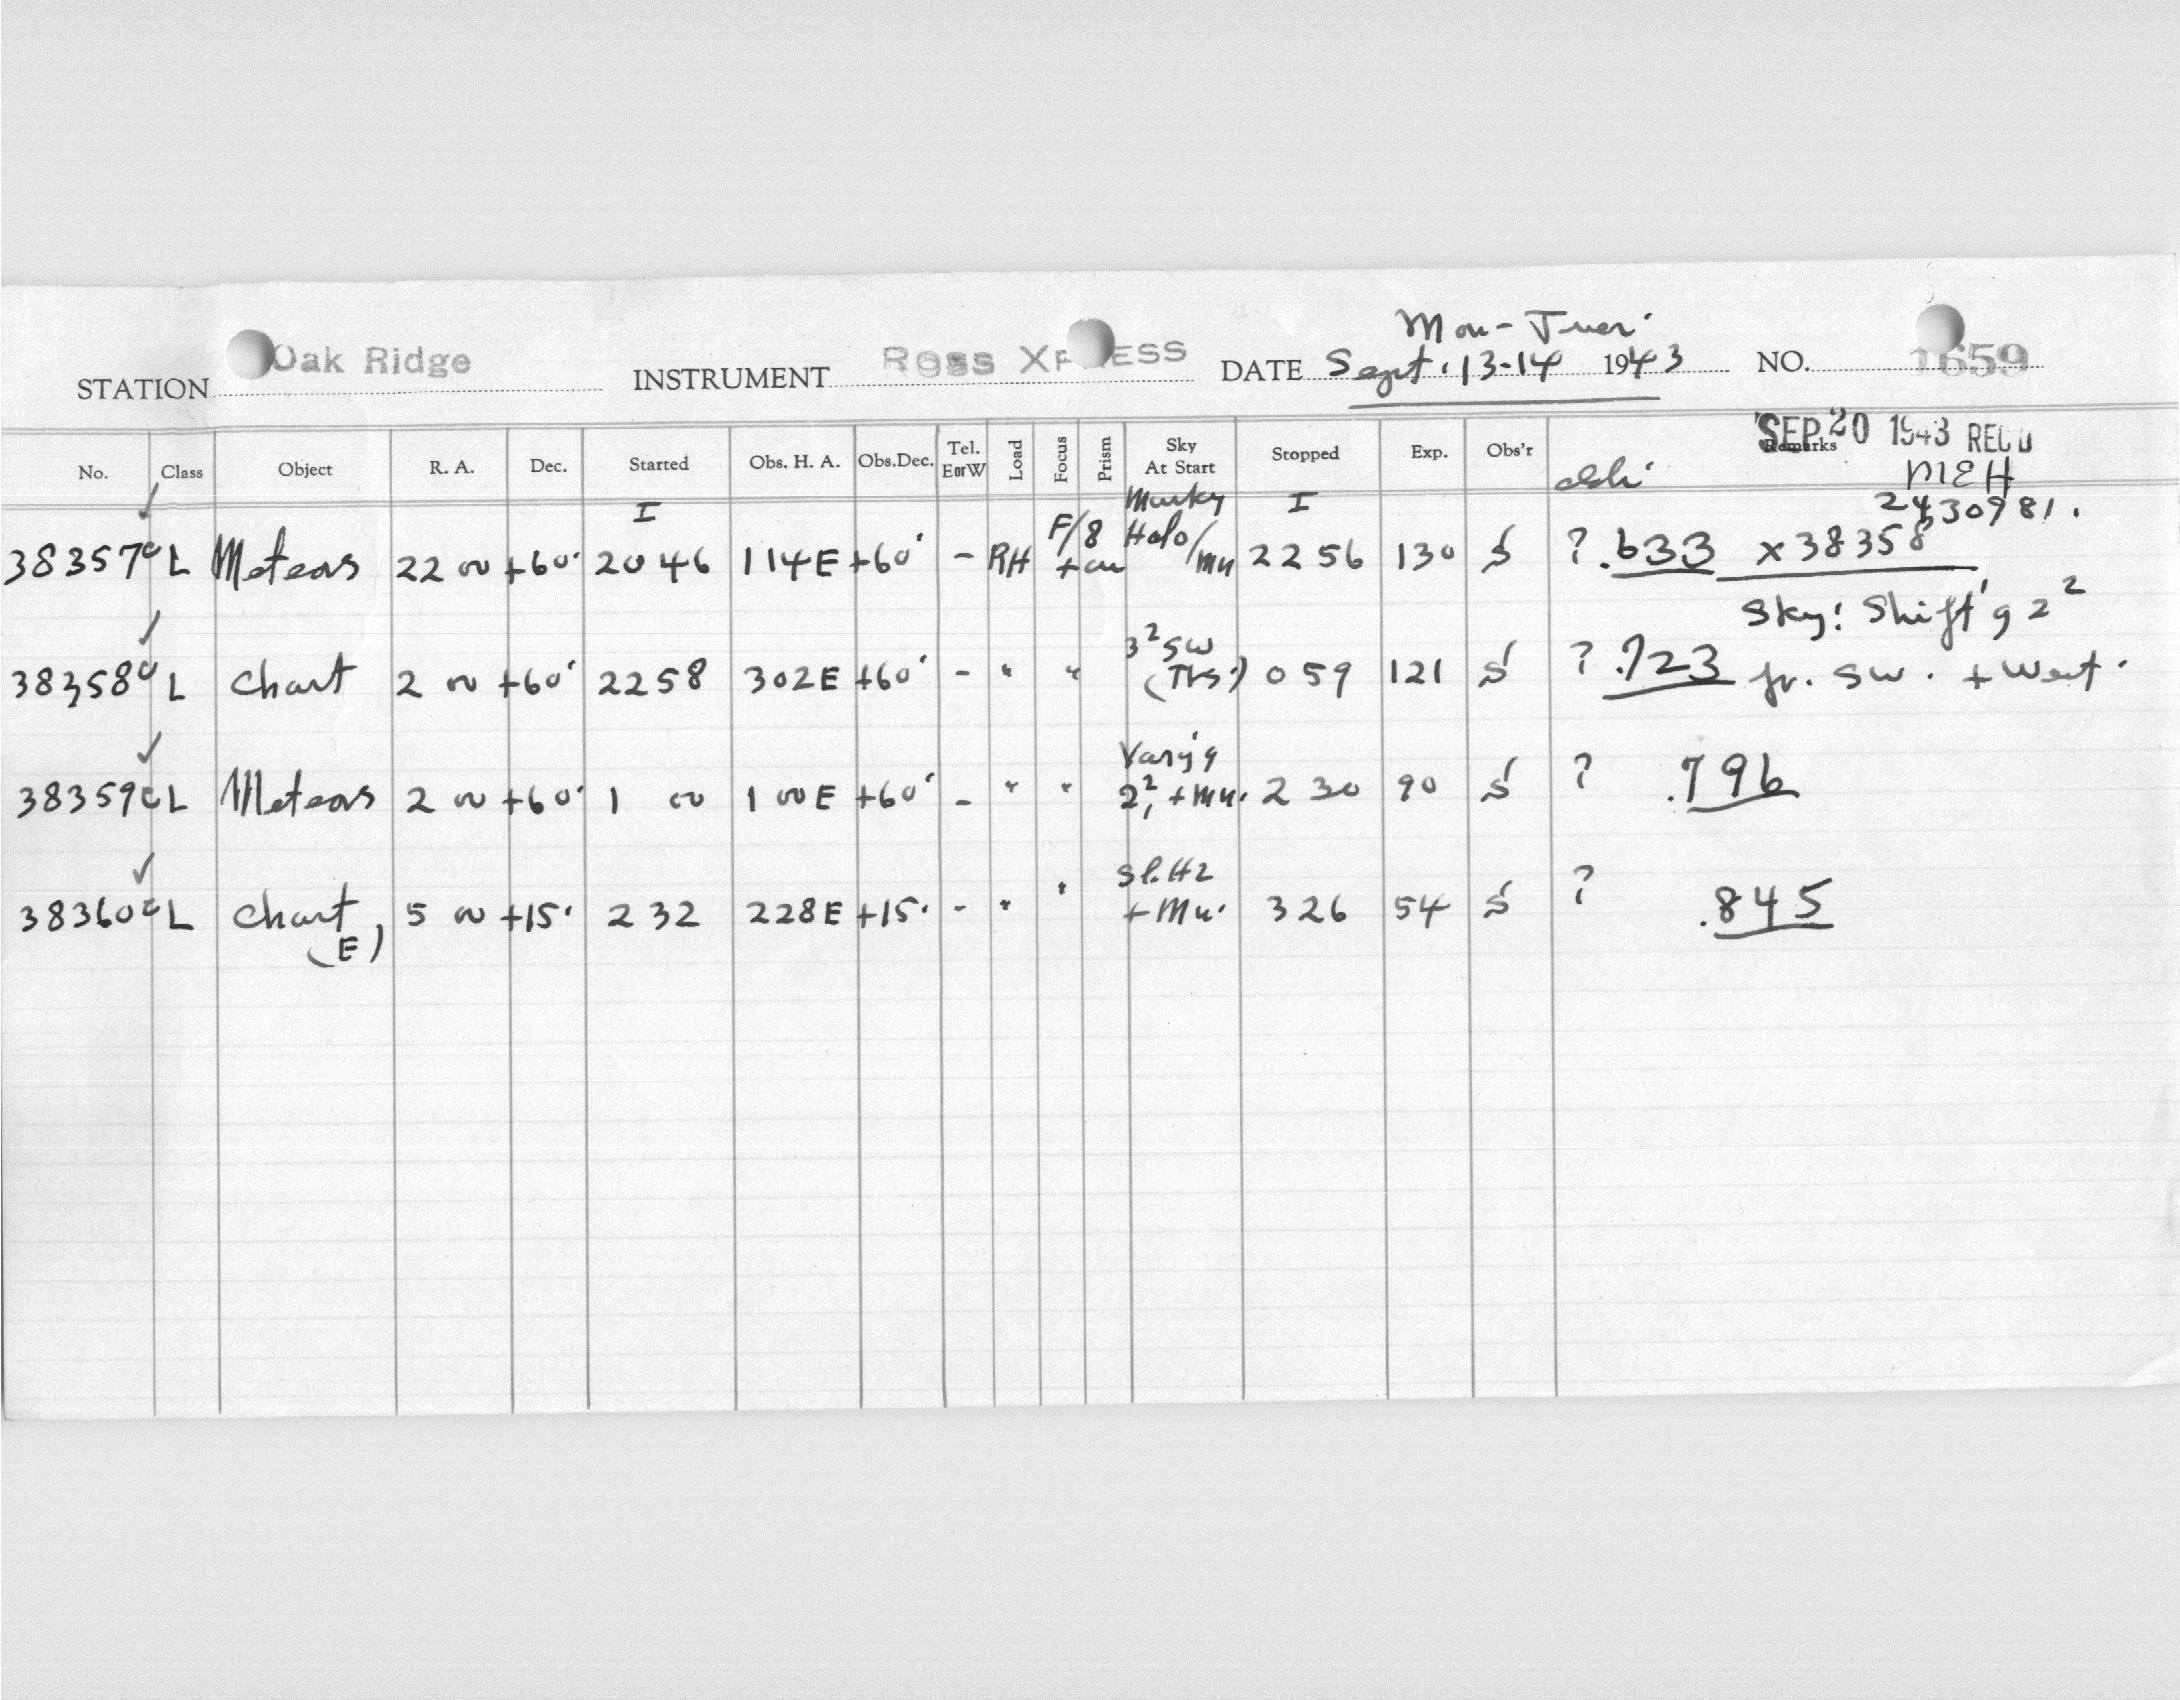 Mon-Tues.
STATION Oak Ridge INSTRUMENT Ross XPRESS DATE Sept. 13-14 1943 NO. 1659
SEP 20 1943 REC'D
No. Class Object R. A. Dec. Started Obs. H. A. Obs.Dec. Tel. E or W Load Focus Prism Sky At Start Stopped Exp. Obs'r Remarks
MEH
2430981.
I Murky I
38357 c L Meteors 22 00 +60° 2046 114E +60° - RH F/8 + Halo/Mn 2256 130 S ? .633 x38358
Sky! Shift'g 2²
38358 c L Chart 2 00 +60° 2258 302E +60° - " " 3² SW (Trs.) 0 59 121 S ? .723 fr. SW. + West.
38359 c L Meteors 2 00 +60° 1 00 1 00 E +60° - " " Vary'g 2², + Mn. 2 30 90 S ? .796
38360 c L Chart (E) 5 00 +15° 2 32 228E +15° - " " Sl. Hz + Mn. 3 26 54 S ? .845